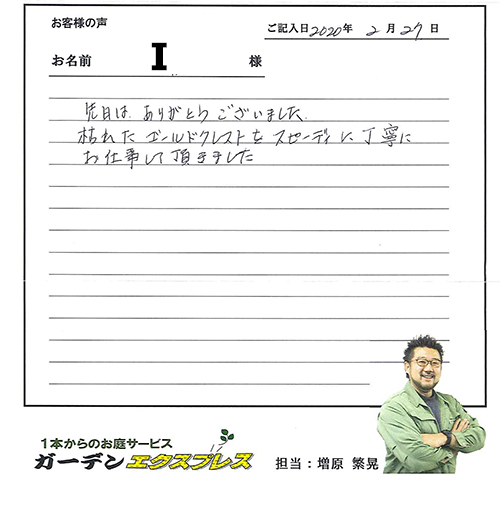 お客様の声
ご記入日 2020年 2月 27日
お名前 I 様
先日は ありがとうございました.
枯れた ゴールドクレストを スピーディに 丁寧に
お仕事して頂きました
1本からのお庭サービス
ガーデンエクスプレス
担当：増原 繁晃